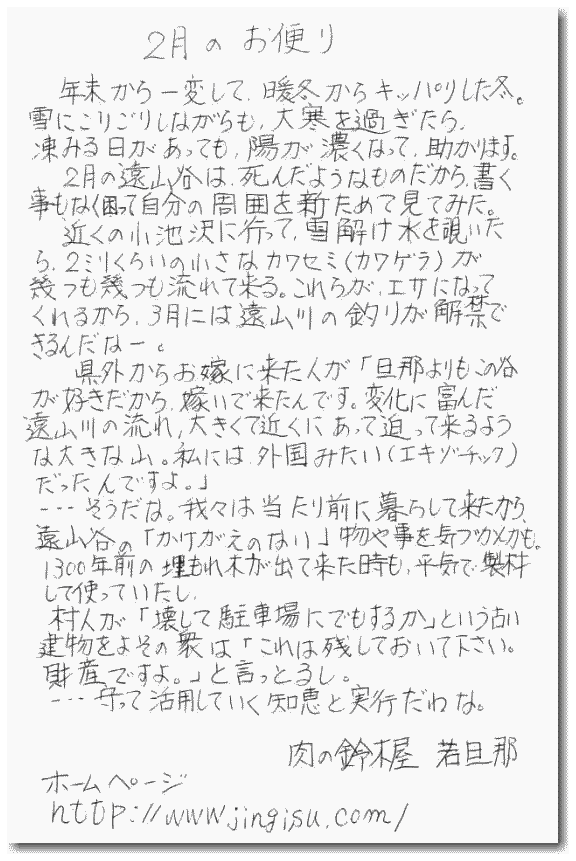 2月のお便り
年末から一変して、暖冬からキッパリした冬。
雪にこりごりしながらも、大寒を過ぎたら、
凍みる日があっても、陽が濃くなって、助かります。
2月の遠山谷は、死んだようなものだから、書く
事もなく困って自分の周囲を新ためて見てみた。
近くの小池沢に行って、雪解け水を覗いた
ら、2ミリくらいの小さなカワセミ（カワゲラ）が
幾つも幾つも流れて来る。これらが、エサになって
くれるから、3月には遠山川の釣りが解禁で
きるんだなー。
県外からお嫁に来た人が「旦那よりもこの谷
が好きだから、嫁いで来たんです。変化に富んだ
遠山川の流れ、大きくて近くにあって迫って来るよう
な大きな山。私には外国みたい（エキゾチック）
だったんですよ。」
---そうだな。我々は当たり前に暮らして来たから、
遠山谷の「かけがえのない」物や事を気づカメカも。
1300年前の埋もれ木が出て来た時も、平気で製材
して使っていたし、
村人が「壊して駐車場にでもするか」という古い
建物をよその衆は「これは残しておいて下さい。
財産ですよ。」と言っとるし。
---守って活用していく知恵と実行だわな。
肉の鈴木屋 若旦那
ホームページ
http://www.jingisu.com/